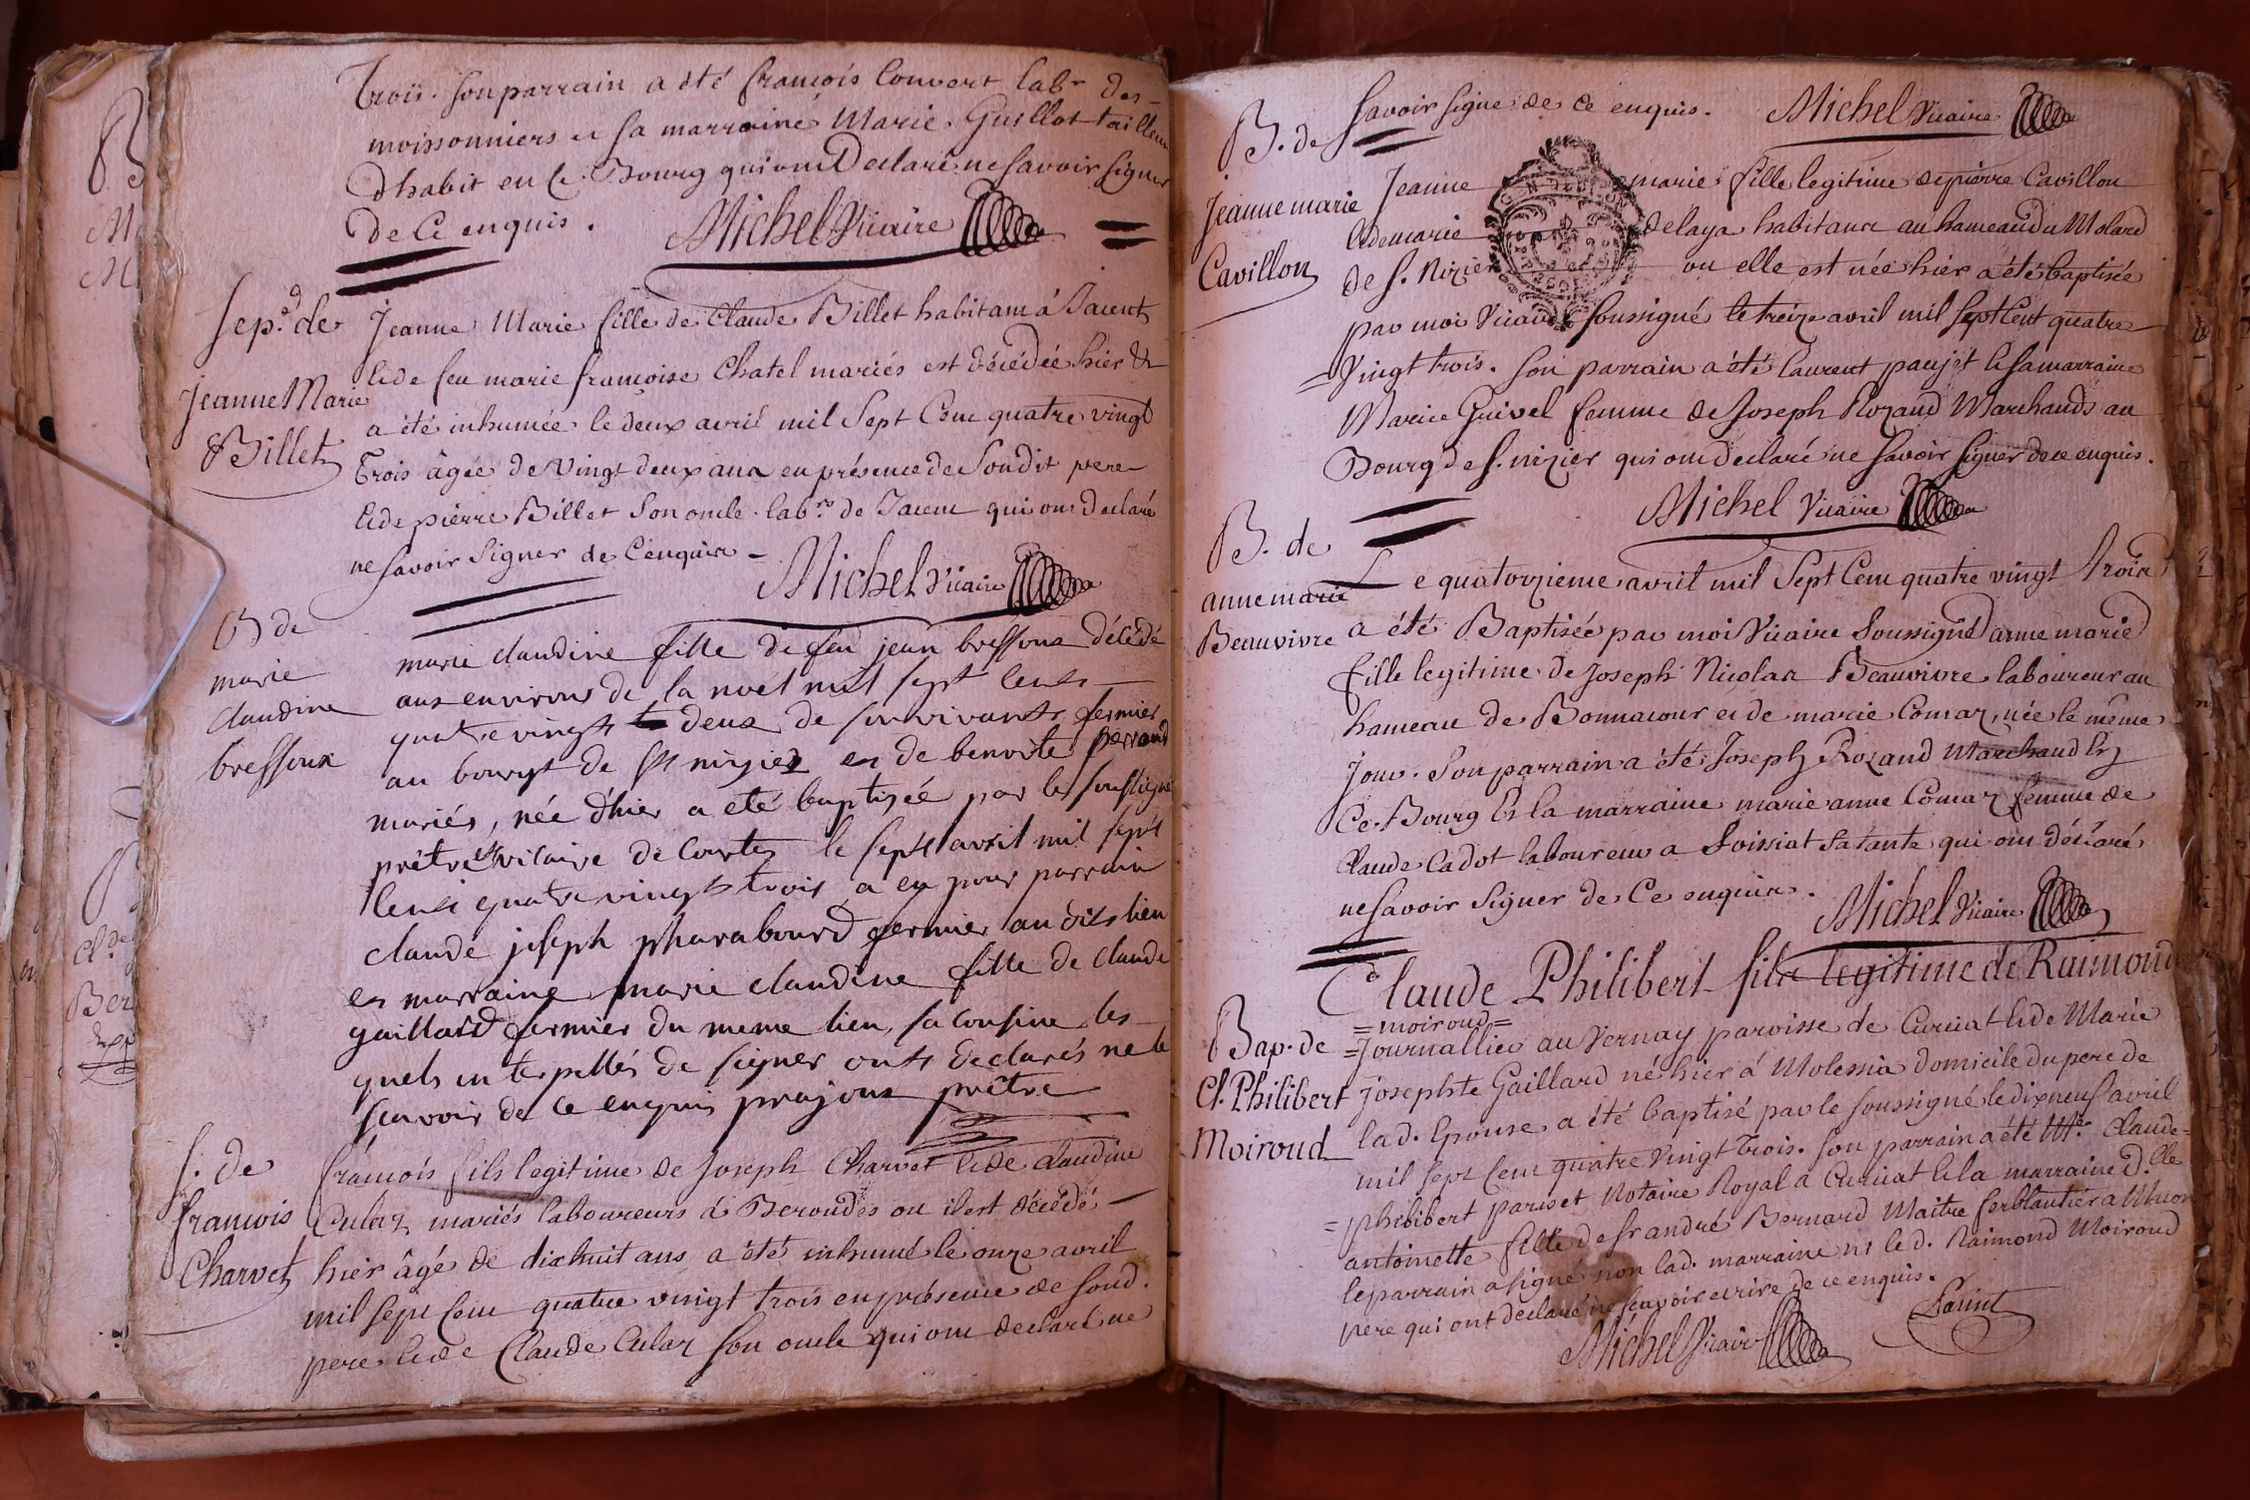 Trois. son parrain a été françois Convert lab.r des
moissonniers et sa marraine Marie Guillot tailleur
d'habit en ce Bourg qui ont Declaré ne savoir signer
de Ce enquis.
Michel Vicaire
Sep.d de
Jeanne Marie
Billet
Jeanne Marie fille de Claude Billet habitant à
et de feu marie françoise Chatel mariés est décédée hier et
a été inhumée le deux avril mil Sept Cent quatre vingt
Trois âgée de Vingt deux ans en présence de Son dit pere
et de pierre Billet Son oncle lab.r de qui ont declaré
ne savoir Signer de Ce enquis
Michel Vicaire
B de
marie
claudine
bressoux
marie claudine fille de feu jean bressoux décédé
aux environs de la noel mil sept cents
quatre vingts deux de son vivant fermier
au bourgt de st nizier et de benoite perrand
mariés, née d'hier a eté baptizée par le soussigné
prêtre vicaire de Curtes le sept avril mil sept
cents quatre vingts trois a eu pour parrain
claude joseph pharabourd fermier au dits lien
et marraine marie claudine fille de claude
gaillard fermier du meme lieu, sa cousine les
quels interpellés de signer onts declarés ne le
scavoir de ce enquis prujoux prêtre
S. de
francois
Charvet
francois fils legitime de Joseph Charvet et de Claudine
Culaz mariés laboureurs à Beroudes ou il est décédé
hier âgé de dixhuit ans a été inhumé le onze avril
mil sept cent quatre vingt trois en présence de sond.
pere et de Claude Culaz son oncle qui ont declaré ne
savoir signer de ce enquis. Michel Vicaire
B. de
Jeanne marie
Cavillon
Jeanne marie fille legitime de pierre Cavillon
et de marie delaya habitans au hameau du Molard
de S. Nizier ou elle est née hier a été baptisée
par moi Vicaire soussigné le treize avril mil sept Cent quatre
Vingt trois. son parrain a été laurent paujet et sa marraine
Marie Guivel femme de Joseph Rozand Marchands au
Bourg de S. nizier qui ont declaré ne savoir signer de ce enquis.
Michel Vicaire
B. de
anne marie
Beauvivre
Le quatorzieme avril mil Sept Cent quatre vingt trois
a été Baptisée par moi Vicaire Soussigné anne marie
fille legitime de Joseph Nicolas Beauvivre laboureur au
hameau de Bonnacour et de marie Comaz, née le même
Jour. Son parrain a été Joseph Rozand Marchand En
Ce Bourg Et la marraine marie anne Comaz femme de
Claude Cadot laboureur a Foissiat sa tante qui ont déclaré
ne savoir Signer de Ce enquis.
Michel Vicaire
Bap. de
Cl. Philibert
Moiroud
Claude Philibert fils legitime de Raimond
=moiroud=
=Journallier au Vernay paroisse de Curciat et de Marie
Josephte Gaillard né hier à Molessia domicile du pere de
lad. Epouse a été baptisé par le soussigné le dix neuf avril
mil sept cent quatre Vingt Trois. Son parrain a été M.e Claude=
=philibert pariset Notaire Royal a Curciat et la marraine D.lle
antoinette fille de Sr andré Bernard Maitre ferblantier a
le parrain a signé non lad. marraine ni le d. Raimond Moiroud
pere qui ont declaré ne sçavoir ecrire de ce enquis.
Michel Vicaire